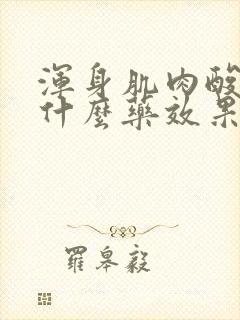 渾身肌肉酸
什麼藥效果
羅皋毅